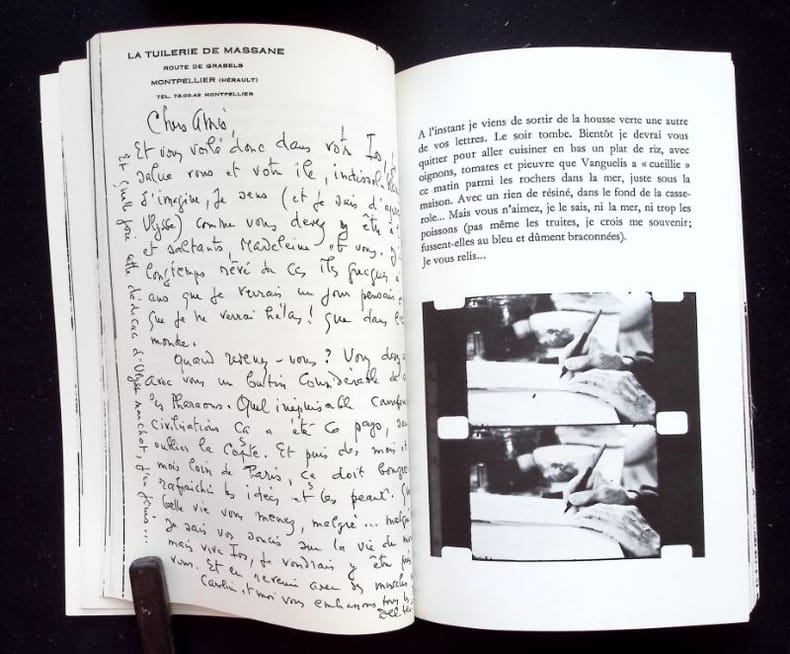 LA TUILERIE DE MASSANE
ROUTE DE GRABELS
MONTPELLIER (HÉRAULT)
TÉL. 72.00.42 MONTPELLIER
Chers Amis,
Et vous voilà donc dans votre Ios, je
salue vous et votre île,
J'imagine, je sens (et je sais d'après
Ulysse) comme vous devez y être
et saltants, Madeleine et vous.
longtemps rêvé de ces îles grecques
ans que je verrais un jour pensais
que je ne verrai hélas! que dans l'
monde.
Quand revenez-vous? Vous
avec vous un butin considérable de
des Pharaons. Quel inépuisable
civilisation ça a été ce pays, sans
oublier le Copte. Et puis des mois et
mois loin de Paris, ça doit
rafraîchir les idées et les peaux.
belle vie vous menez, malgré... malgré
Je sais vos soucis sur la vie du
mais vive Ios, je voudrais y être
vous. Et en revenir avec des muscles
Caroline et moi vous embrassons tous les
Delteil
Et quelle joie cette dédicace d'Ulysse manchot, j'en
A l'instant je viens de sortir de la housse verte une autre
de vos lettres. Le soir tombe. Bientôt je devrai vous
quitter pour aller cuisiner en bas un plat de riz, avec
oignons, tomates et pieuvre que Vanguelis a « cueillie »
ce matin parmi les rochers dans la mer, juste sous la
maison. Avec un rien de résiné, dans le fond de la casse-
role... Mais vous n'aimez, je le sais, ni la mer, ni trop les
poissons (pas même les truites, je crois me souvenir;
fussent-elles au bleu et dûment braconnées).
Je vous relis...